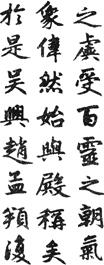 之虞受百靈之朝氣
象偉然始與殿稱矣
於是吳興趙孟頫復